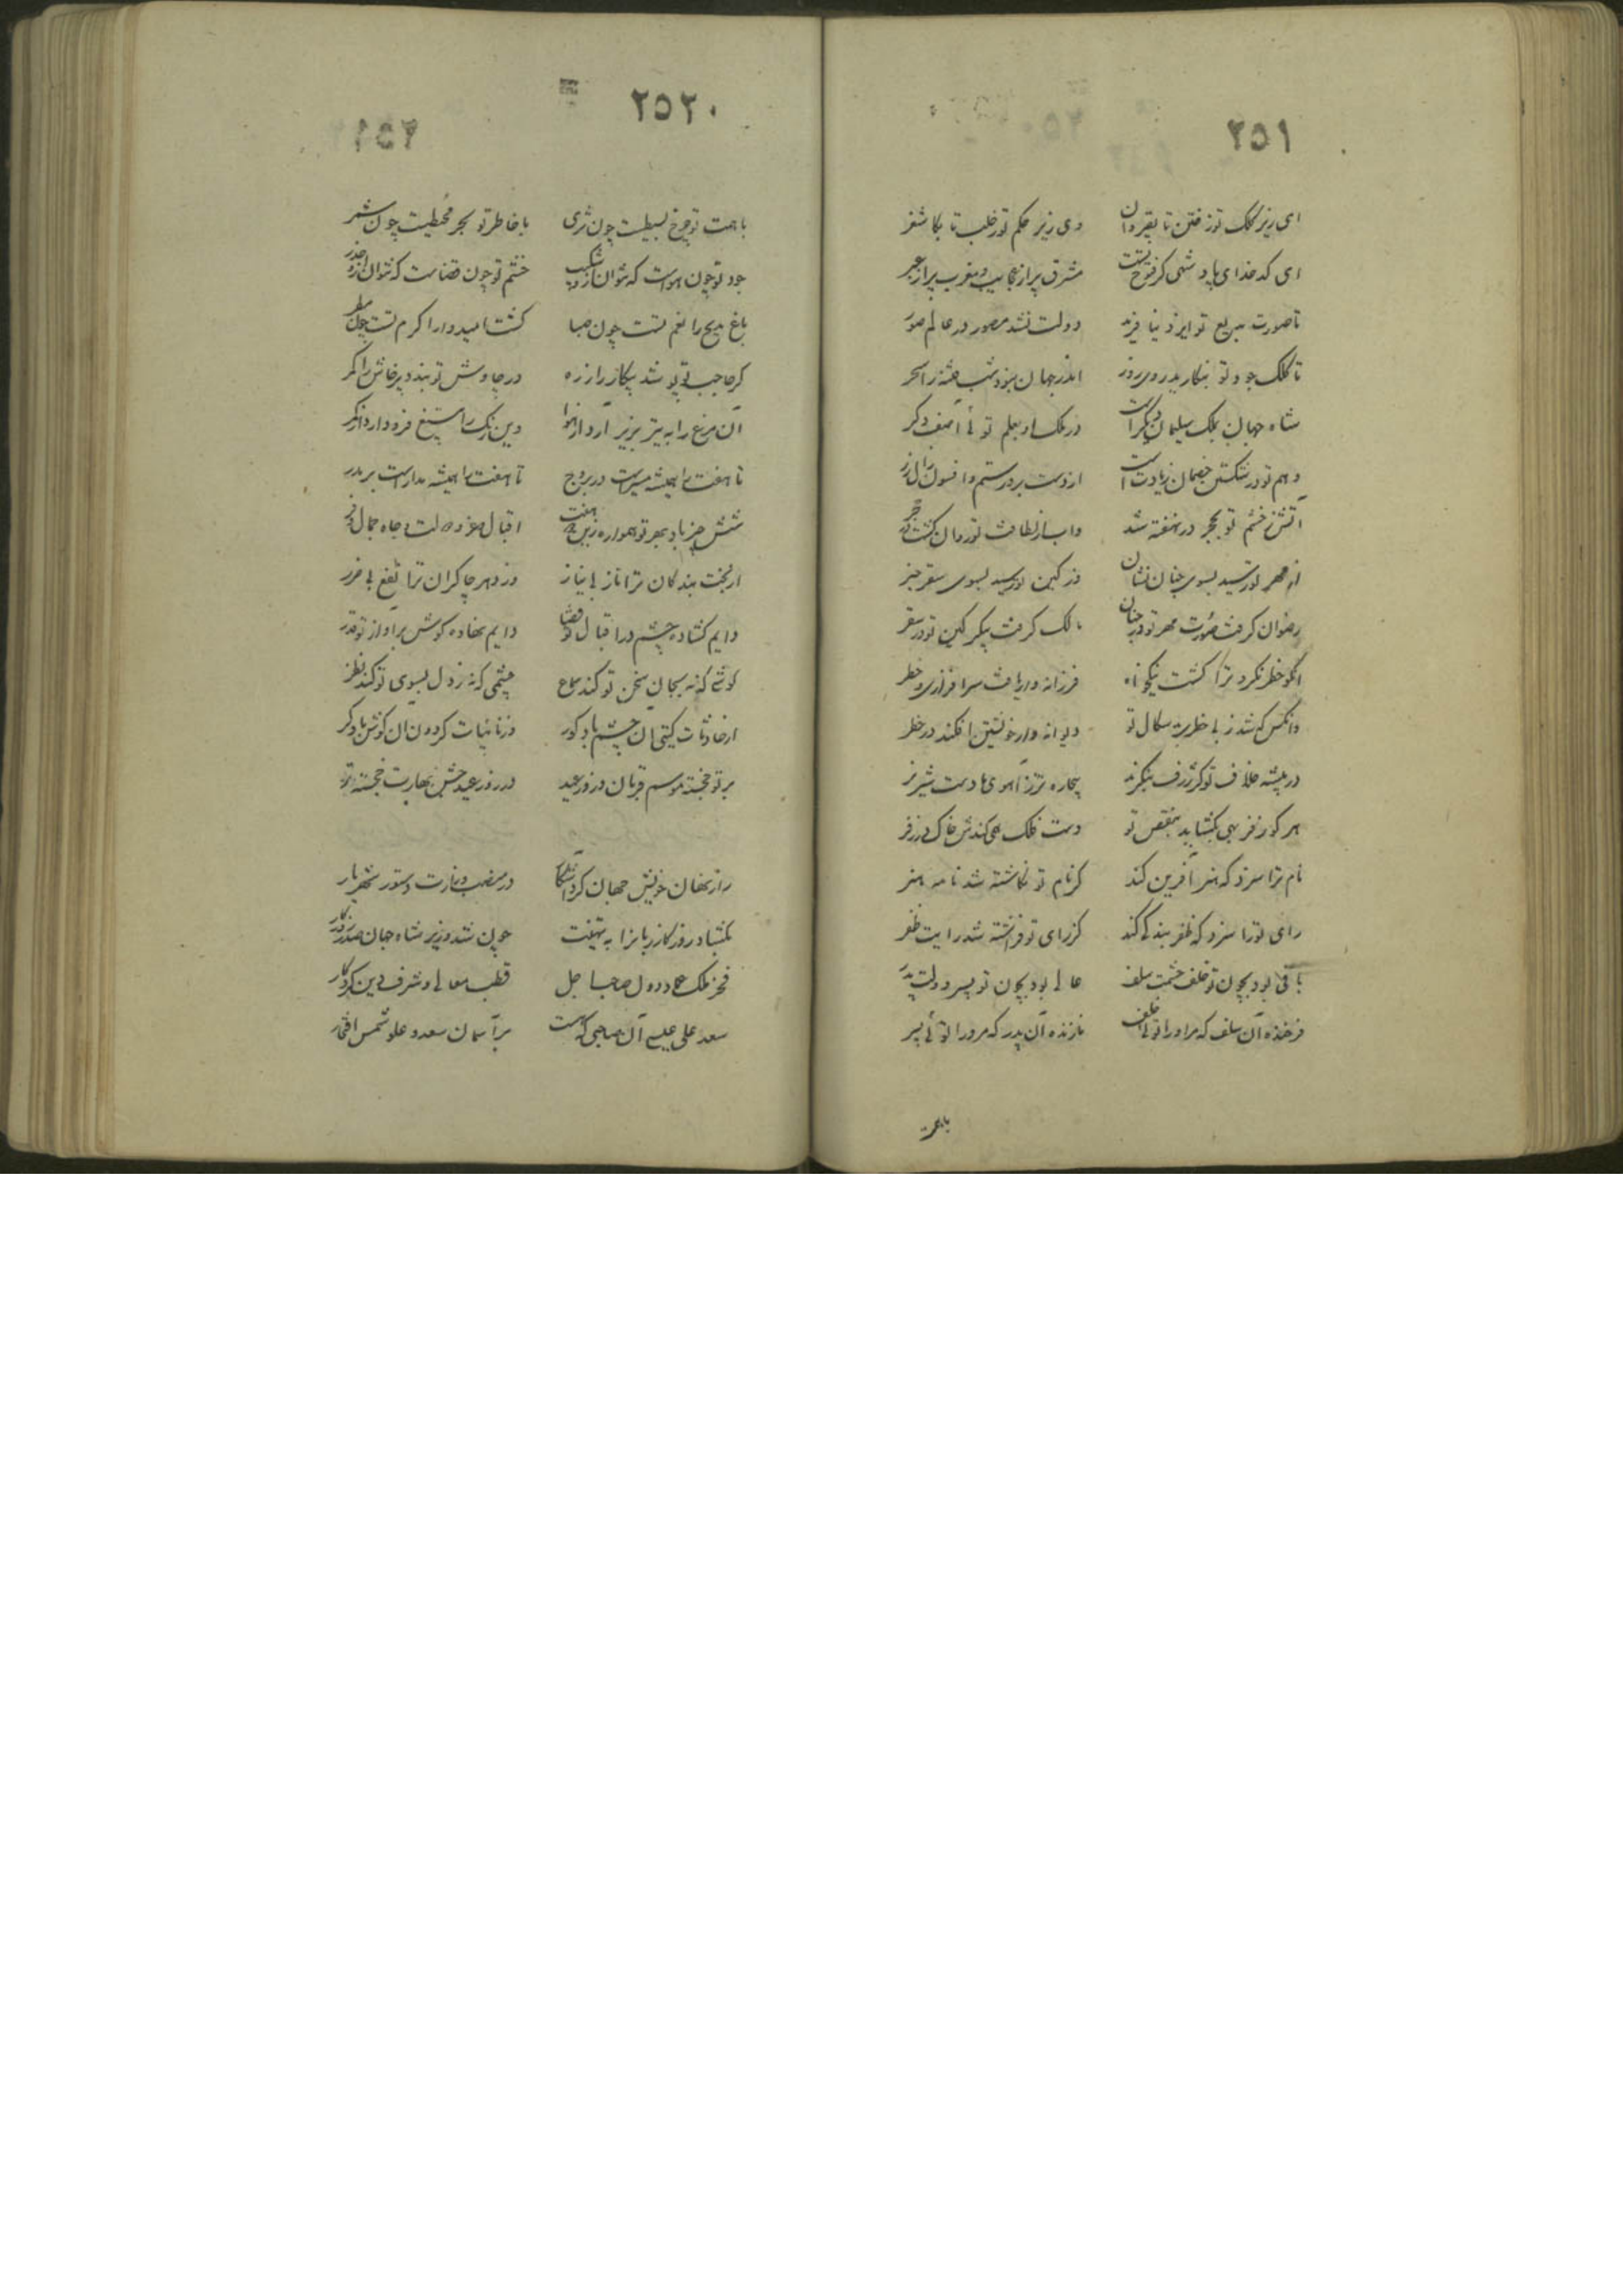 ۲۵۱
ای زیر کلک تو ز ختن تا بقیروان وی زیر حکم تو ز حلب تا بکاشغر
ای کدخدای پادشهی کز فتوح تست مشرق پر از عجایب و مغرب پر از عبر
تا صورت بدیع تو ایزد نیافرید دولت نشد مصور در عالم صور
تا کلک جود تو بنگارید روی روز اندر جهان نبود شب فتنه را سحر
شاه جهان بملک سلیمان دیگر است در ملک او بعلم توئی آصف دگر
وهم تو در شکستن خصمان زیادت است از دست برد رستم و افسون زال زر
آتش ز خشم تو بحجر در نهفته شد و آب از لطافت تو روان گشت از حجر
از مهر تو رسید بسوی جنان نشان وز کین تو رسید بسوی سقر خبر
رضوان گرفت صورت مهر تو در جنان مالک گرفت پیکر کین تو در سقر
آنکو خطر نکرد ترا گشت نیکخواه فرزانه وار یافت سرافرازی و خطر
وانکس که شد ز بی خطری بدسگال تو دیوانه وار خویشتن افکند در خطر
در بیشه خلاف تو گر ژرف بنگرند بیچاره‌تر ز آهوی ماده‌ست شیر نر
هر کو ز فربهی بگشاید بنقص تو دست فلک همی کندش خاک در زفر
نام ترا سزد که هنر آفرین کند کز نام تو نگاشته شد نامه هنر
رای ترا سزد که ظفر بندگی کند کز رای تو فراشته شد رایت ظفر
باقی بود بچون تو خلف حشمت سلف عالی بود بچون تو پسر دولت پدر
فرخنده آن سلف که مر او را توئی خلف نازنده آن پدر که مر او را توئی پسر
با همت
۲۵۲۰
با همت تو چرخ بسیطست چون ثری با خاطر تو بحر محیطست چون شمر
جود تو چون هواست که نتوان ازو شکیب خشم تو چون قضاست که نتوان ازو حذر
باغ مدیح را نعم تست چون صبا کشت امید را کرم تست چون مطر
تا هفت را همیشه مسیرست در بروج تا هفت را همیشه مدارست بر مدر
شش چیز باد بهر تو همواره زین دو هفت اقبال و عز و دولت و جاه و جمال و فر
از بخت بندگان ترا ناز بی نیاز وز دهر چاکران ترا نفع بی ضرر
دایم گشاده چشم در اقبال تو قضا دایم نهاده گوش بر آواز تو قدر
گوشی که نه بجان سخن تو کند سماع چشمی که نه ز دل بسوی تو کند نظر
از حادثات گیتی آن چشم باد کور وز نائبات گردون آن گوش باد کر
بر تو خجسته موسم قربان و روز عید
راز نهان خویش جهان کرد آشکار در منصب وزارت دستور شهریار
بگشاد روزگار زبان را به تهنیت چون شد وزیر شاه جهان صدر روزگار
فخر ملک عماد دول صاحب اجل قطب معالی و شرف دین کردگار
سعد علی عیسی آن صاحبی که هست بر آسمان سعد و علو شمس افتخار